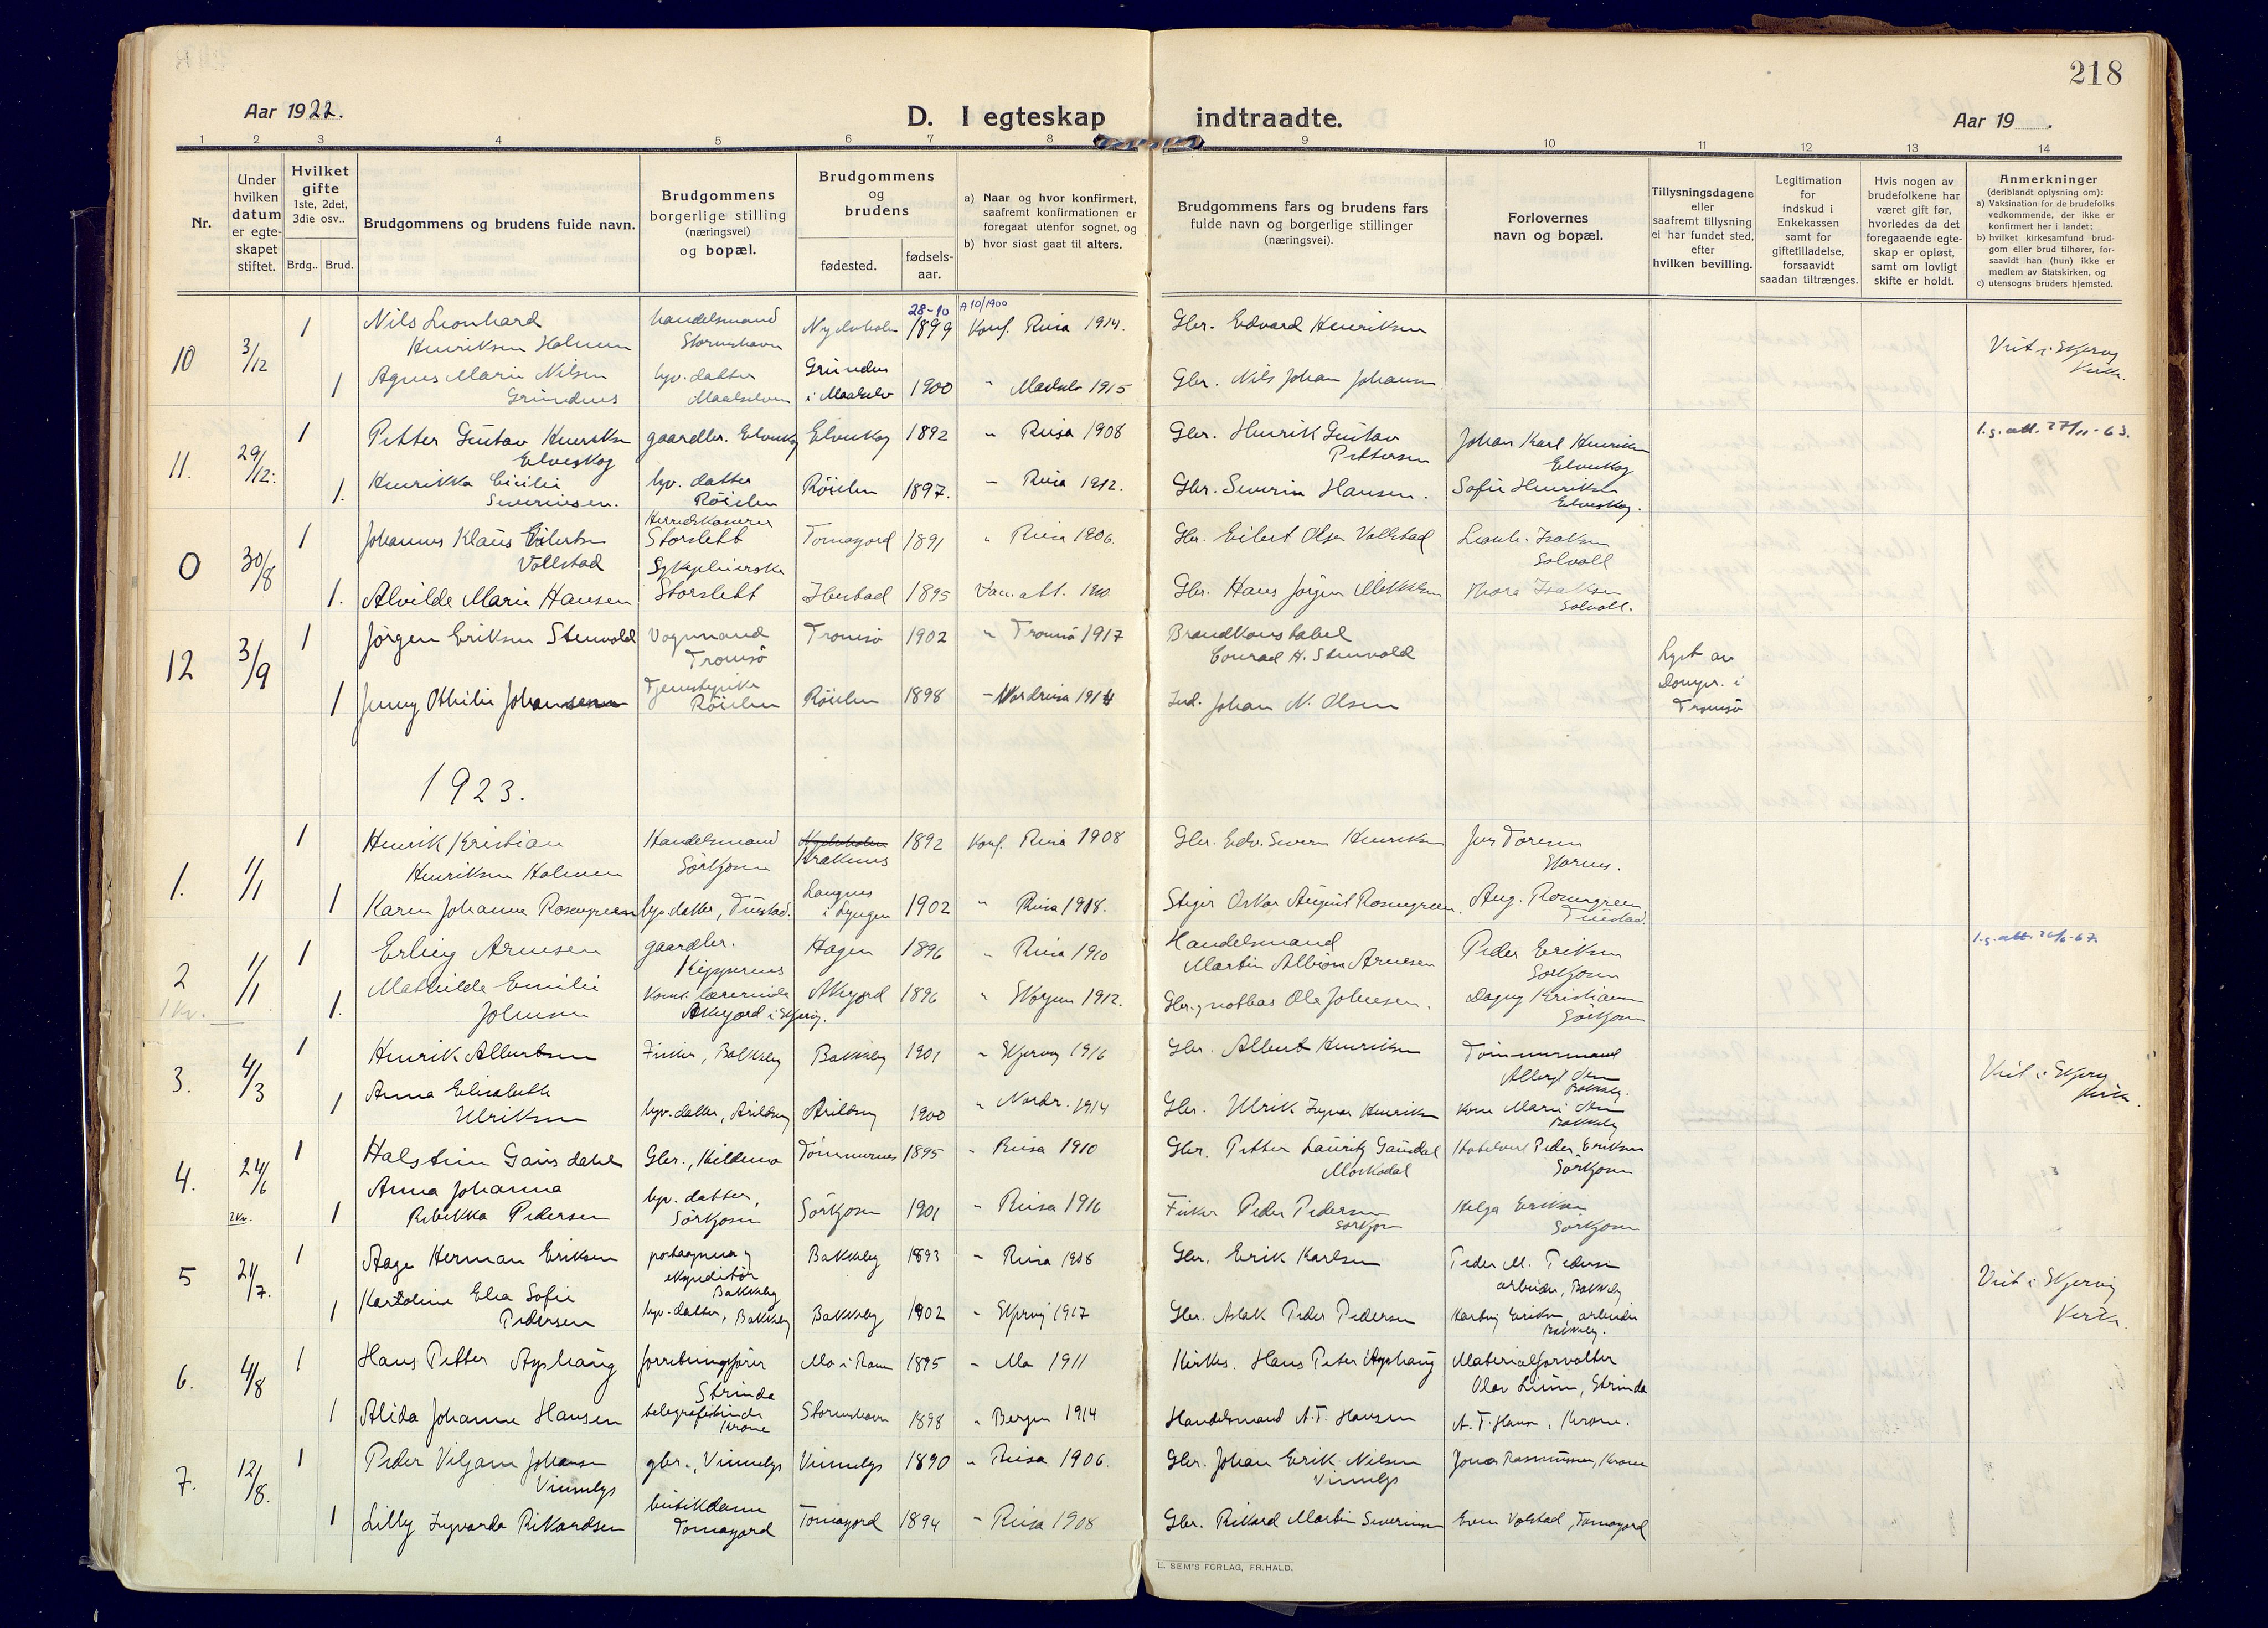 218
Aar 1922.
D. I egteskap indtraadte.
Aar 19 .
1 2 3 4 5 6 7 8 9 10 11 12 13 14
Nr.
Under hvilken datum er egte- skapet stiftet.
Hvilket gifte 1ste, 2det, 3die osv..
Brdg.. Brud.
Brudgommens og brudens fulde navn.
Brudgommens borgerlige stilling (næringsvei) og bopæl.
Brudgommens og brudens
fødested.
fødsels- aar.
a) Naar og hvor konfirmert, saafremt konfirmationen er foregaat utenfor sognet, og
b) hvor sidst gaat til alters.
Brudgommens fars og brudens fars fulde navn og borgerlige stillinger (næringsvei).
Forlovernes navn og bopæl.
Tillysningsdagene eller saafremt tillysning ei har fundet sted, efter hvilken bevilling.
Legitimation for indskud i Enkekassen samt for giftetilladelse, forsaavidt saadan tiltrænges.
Hvis nogen av brudefolkene har været gift før, hvorledes da det foregaaende egte- skap er opløst, samt om lovligt skifte er holdt.
Anmerkninger (deriblandt oplysning om):
a) Vaksination for de brudefolks vedkommende, der ikke er konfirmert her i landet;
b) hvilket kirkesamfund brud- gom eller brud tilhører, for- saavidt han (hun) ikke er medlem av Statskirken, og
c) utensogns bruders hjemsted.
28-10 A 10/1900
10 3/12 1 Nils Leonhard Henriksen Holmen handelsmand Storneshavn 1899 Konf. Reisa 1914. Gbr. Edvard Henriksen
1 Agnes Marie Nilsen Grundnes hjv. datter Maalselven Grundnes i Maalselv 1900 " Maalselv 1915 Gbr. Nils Johan Johansen
Viet i Skjervøy kirke.
11. 29/12. 1 Petter Gustav Henriksen Elveskog gaardbr. Elveskog Elveskog 1892 " Reisa 1908 Gbr. Henrik Gustav Pettersen Johan Karl Henriksen Elveskog l.g. att. 27/11-63.
1. Henrikka Cecilie Severinsen. hjv. datter Røielen Røielen 1897. " Reisa 1912. Gbr. Severin Hansen. Sofie Henriksen Elveskog.
0 30/8 1 Johannes Klaus Eilertsen Vollstad Herredskaserer Storslett 1891 " Reisa 1906. Gbr. Eilert Olsen Vollstad Leonh. Isaksen Solvoll
1. Alvilde Marie Hansen Sykepleierske Storslett Ibestad 1895 Vac. att. Gbr. Hans Jørgen Mikkelsen Thora Isaksen Solvoll.
12 3/9 1 Jørgen Eriksen Stenvold Vognmand Tromsø Tromsø 1902 " Tromsø 1917 Brandkonstabel Conrad H. Stenvold
1 Jenny Othilie Johansen Tjenestepike Røielen Røielen 1898 " Nordreisa 1914 Ind. Johan N. Olsen
Lyst av Dompr. i Tromsø
1923.
1. 1/1 1 Henrik Kristian Henriksen Holmen Handelsmand Sørkjosen Krakenes 1892 Konf. Reisa 1908 Gbr. Edv. Severin Henriksen Jens Toresen Stornes.
1 Karen Johanne Rosengreen hjv. datter, Tunstad. Langnes i Lyngen 1902 " Reisa 1918. Stiger Oskar August Rosengreen. Aug. Rosengreen Tunstad.
2 1/1 1 Erling Arnesen gaardbr. Kippernes Hagen 1896 " Reisa 1910 Handelsmand Martin Albion Arnesen Peder Eriksen Sørkjosen l.g. att. 26/6-67.
1 Kv. 1. Mathilde Emilie Johnsen Konst. lærerinde Akkjord i Skjervøy. Akkjord 1896 " Skorpen 1912. Gbr., notbas Ole Johnsen. Dagny Kristiansen Sørkjosen
3. 4/3 1 Henrik Albertsen Fisker, Bakkeby Bakkeby 1901 " Skjervøy 1916 Gbr. Albert Henriksen Tømmermand Albert Olsen Bakkeby.
1 Anna Elisabeth Ulriksen hjv. datter, Arildsøy Arildsøy 1900 " Nordr. 1914 Gbr. Ulrik Ingvar Henriksen Kone Marie Olsen Bakkeby
Viet i Skjervøy kirke.
4. 24/6 1 Halstein Gausdahl Gbr., Kildemo Tømmernes 1895 " Reisa 1910 Gbr. Petter Lauritz Gausdal Moskodal Hotelvert Peder Eriksen Sørkjosen
2 Kv. 1 Anna Johanna Rebekka Pedersen hjv. datter, Sørkjosen Sørkjosen 1901 " Reisa 1916 Fisker Peder Pedersen Sørkjosen Helga Eriksen Sørkjosen
5 21/7. 1 Aage Herman Eriksen postaapner og ekspeditør Bakkeby Bakkeby 1893 " Reisa 1908 Gbr. Erik Karlsen Peder M. Pedersen arbeider, Bakkeby
1 Karoline Elea Sofie Pedersen hjv. datter, Bakkeby Bakkeby 1902 " Skjervøy 1917 Gbr. Aslak Peder Pedersen Hartvig Eriksen, arbeider Bakkeby.
Viet i Skjervøy kirke.
6. 4/8 1 Hans Petter Asphaug forretningsfører Strinda Mo i Rana 1895 " Mo 1911 Kirkes. Hans Peter Asphaug Materialforvalter Olav Lium, Strinda
1 Alida Johanne Hansen telegrafistinde Krone Storneshavn 1898 " Bergen 1914 Handelsmand A.T. Hansen A.T. Hansen, Krone.
7. 12/8. 1 Peder Viljam Johansen Vinnelys gbr., Vinnelys Vinnelys 1890 " Reisa 1906. Gbr. Johan Erik Nilsen Vinnelys Jonas Rasmussen, Krone
1 Lilly Ingvarda Rikardsen butikdame Tomasjord Tomasjord 1894 " Reisa 1908 Gbr. Rikard Martin Severinsen Even Volstad, Tomasjord
E. SEM'S FORLAG, FR.HALD.